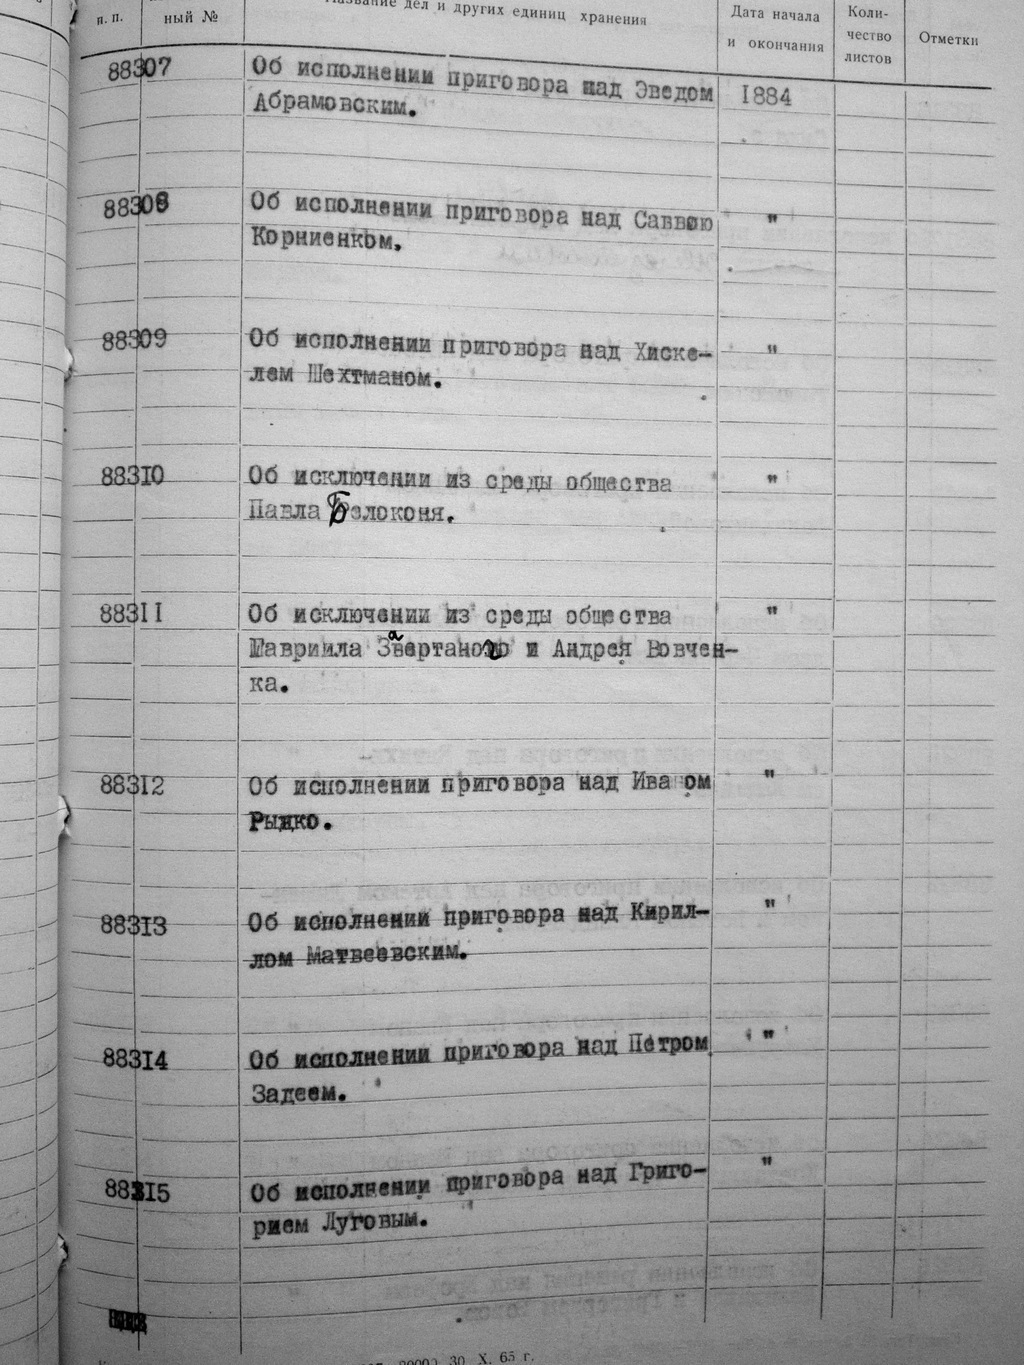 п. п.
ный №
Название дел и других единиц хранения
Дата начала
и окончания
Коли-
чество
листов
Отметки
88307 Об исполнении приговора над Эведом 1884
Абрамовским.
88308 Об исполнении приговора над Саввою "
Корниенком.
88309 Об исполнении приговора над Хиске- "
лем Шехтманом.
88310 Об исключении из среды общества "
Павла Белоконя.
88311 Об исключении из среды общества "
Гавриила Завертаного и Андрея Вовчен-
ка.
88312 Об исполнении приговора над Ива ом "
Рыдко.
88313 Об исполнении приговора над Кирил- "
лом Матвеевским.
88314 Об исполнении приговора над Петром "
Задеем.
88315 Об исполнении приговора над Григо- "
рием Луговым.
30 X. 65 г.